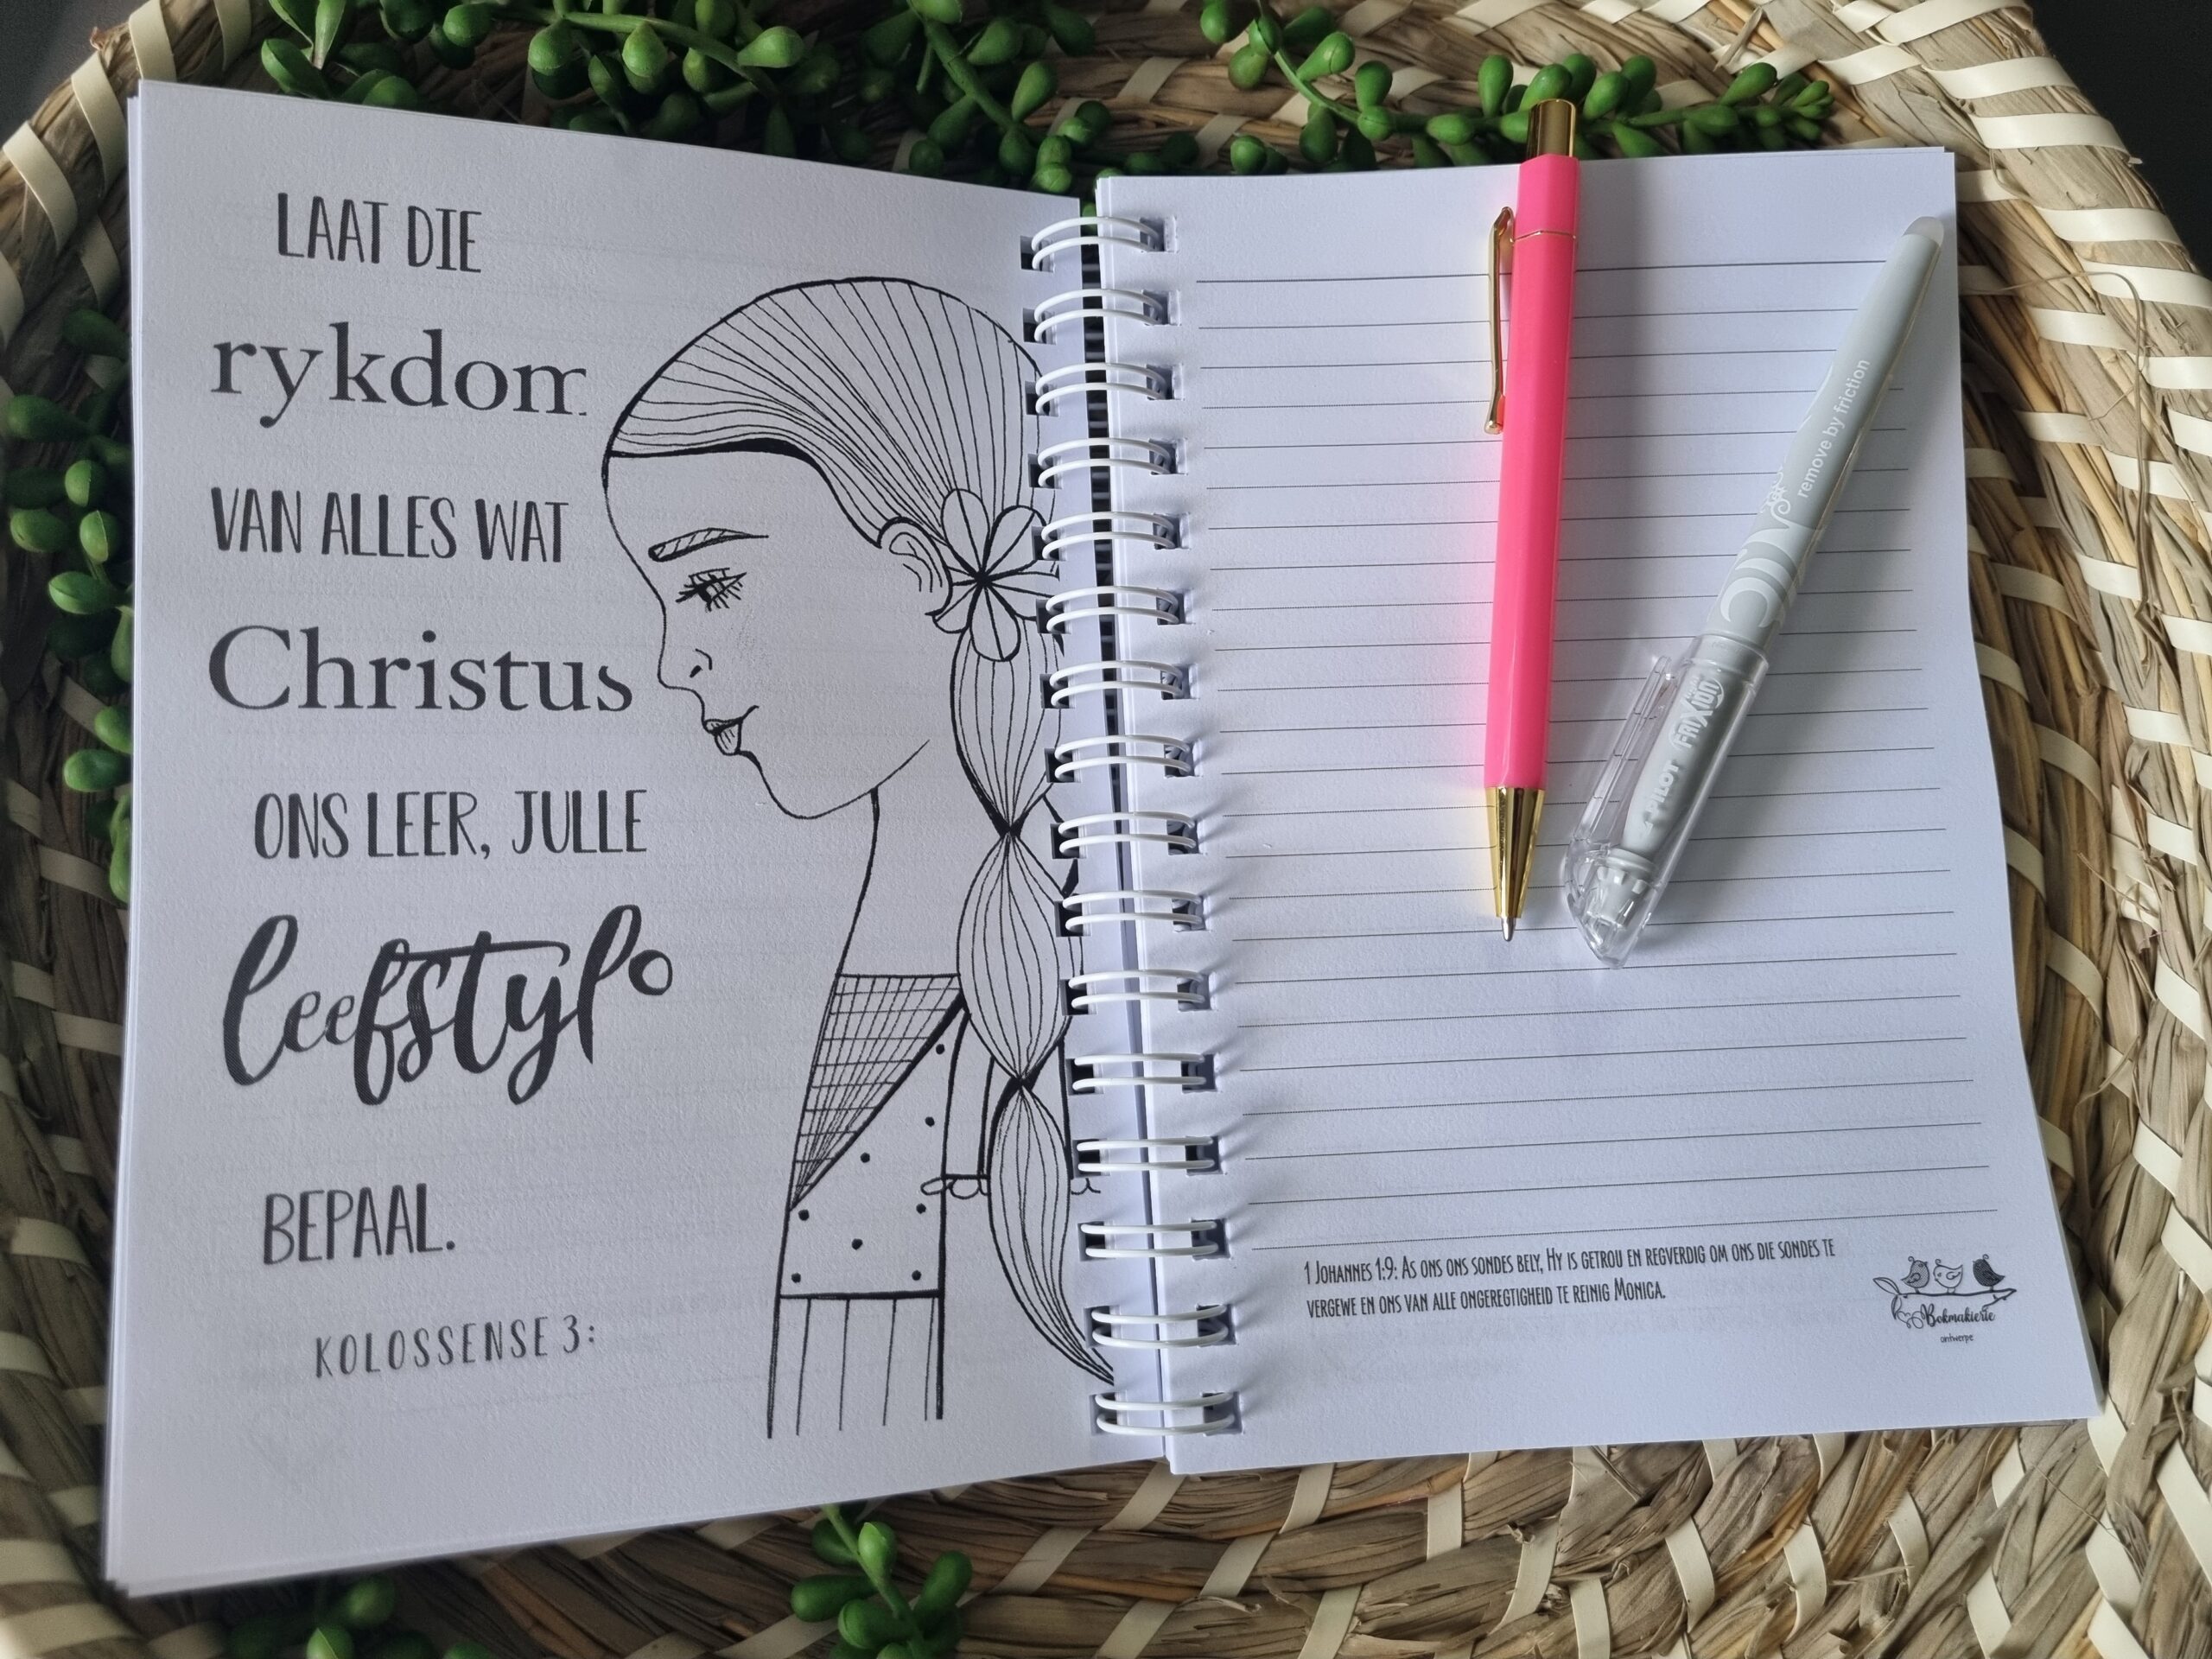 LAAT DIE
rykdom
VAN ALLES WAT
Christus
ONS LEER, JULLE
leefstyl
BEPAAL.
KOLOSSENSE 3:
1 JOHANNES 1:9: AS ONS ONS SONDES BELY, HY IS GETROU EN REGVERDIG OM ONS DIE SONDES TE
VERGEWE EN ONS VAN ALLE ONGEREGTIGHEID TE REINIG MONICA.
Bokmakierie
ontwerpe
remove by friction
PILOT FRIXION